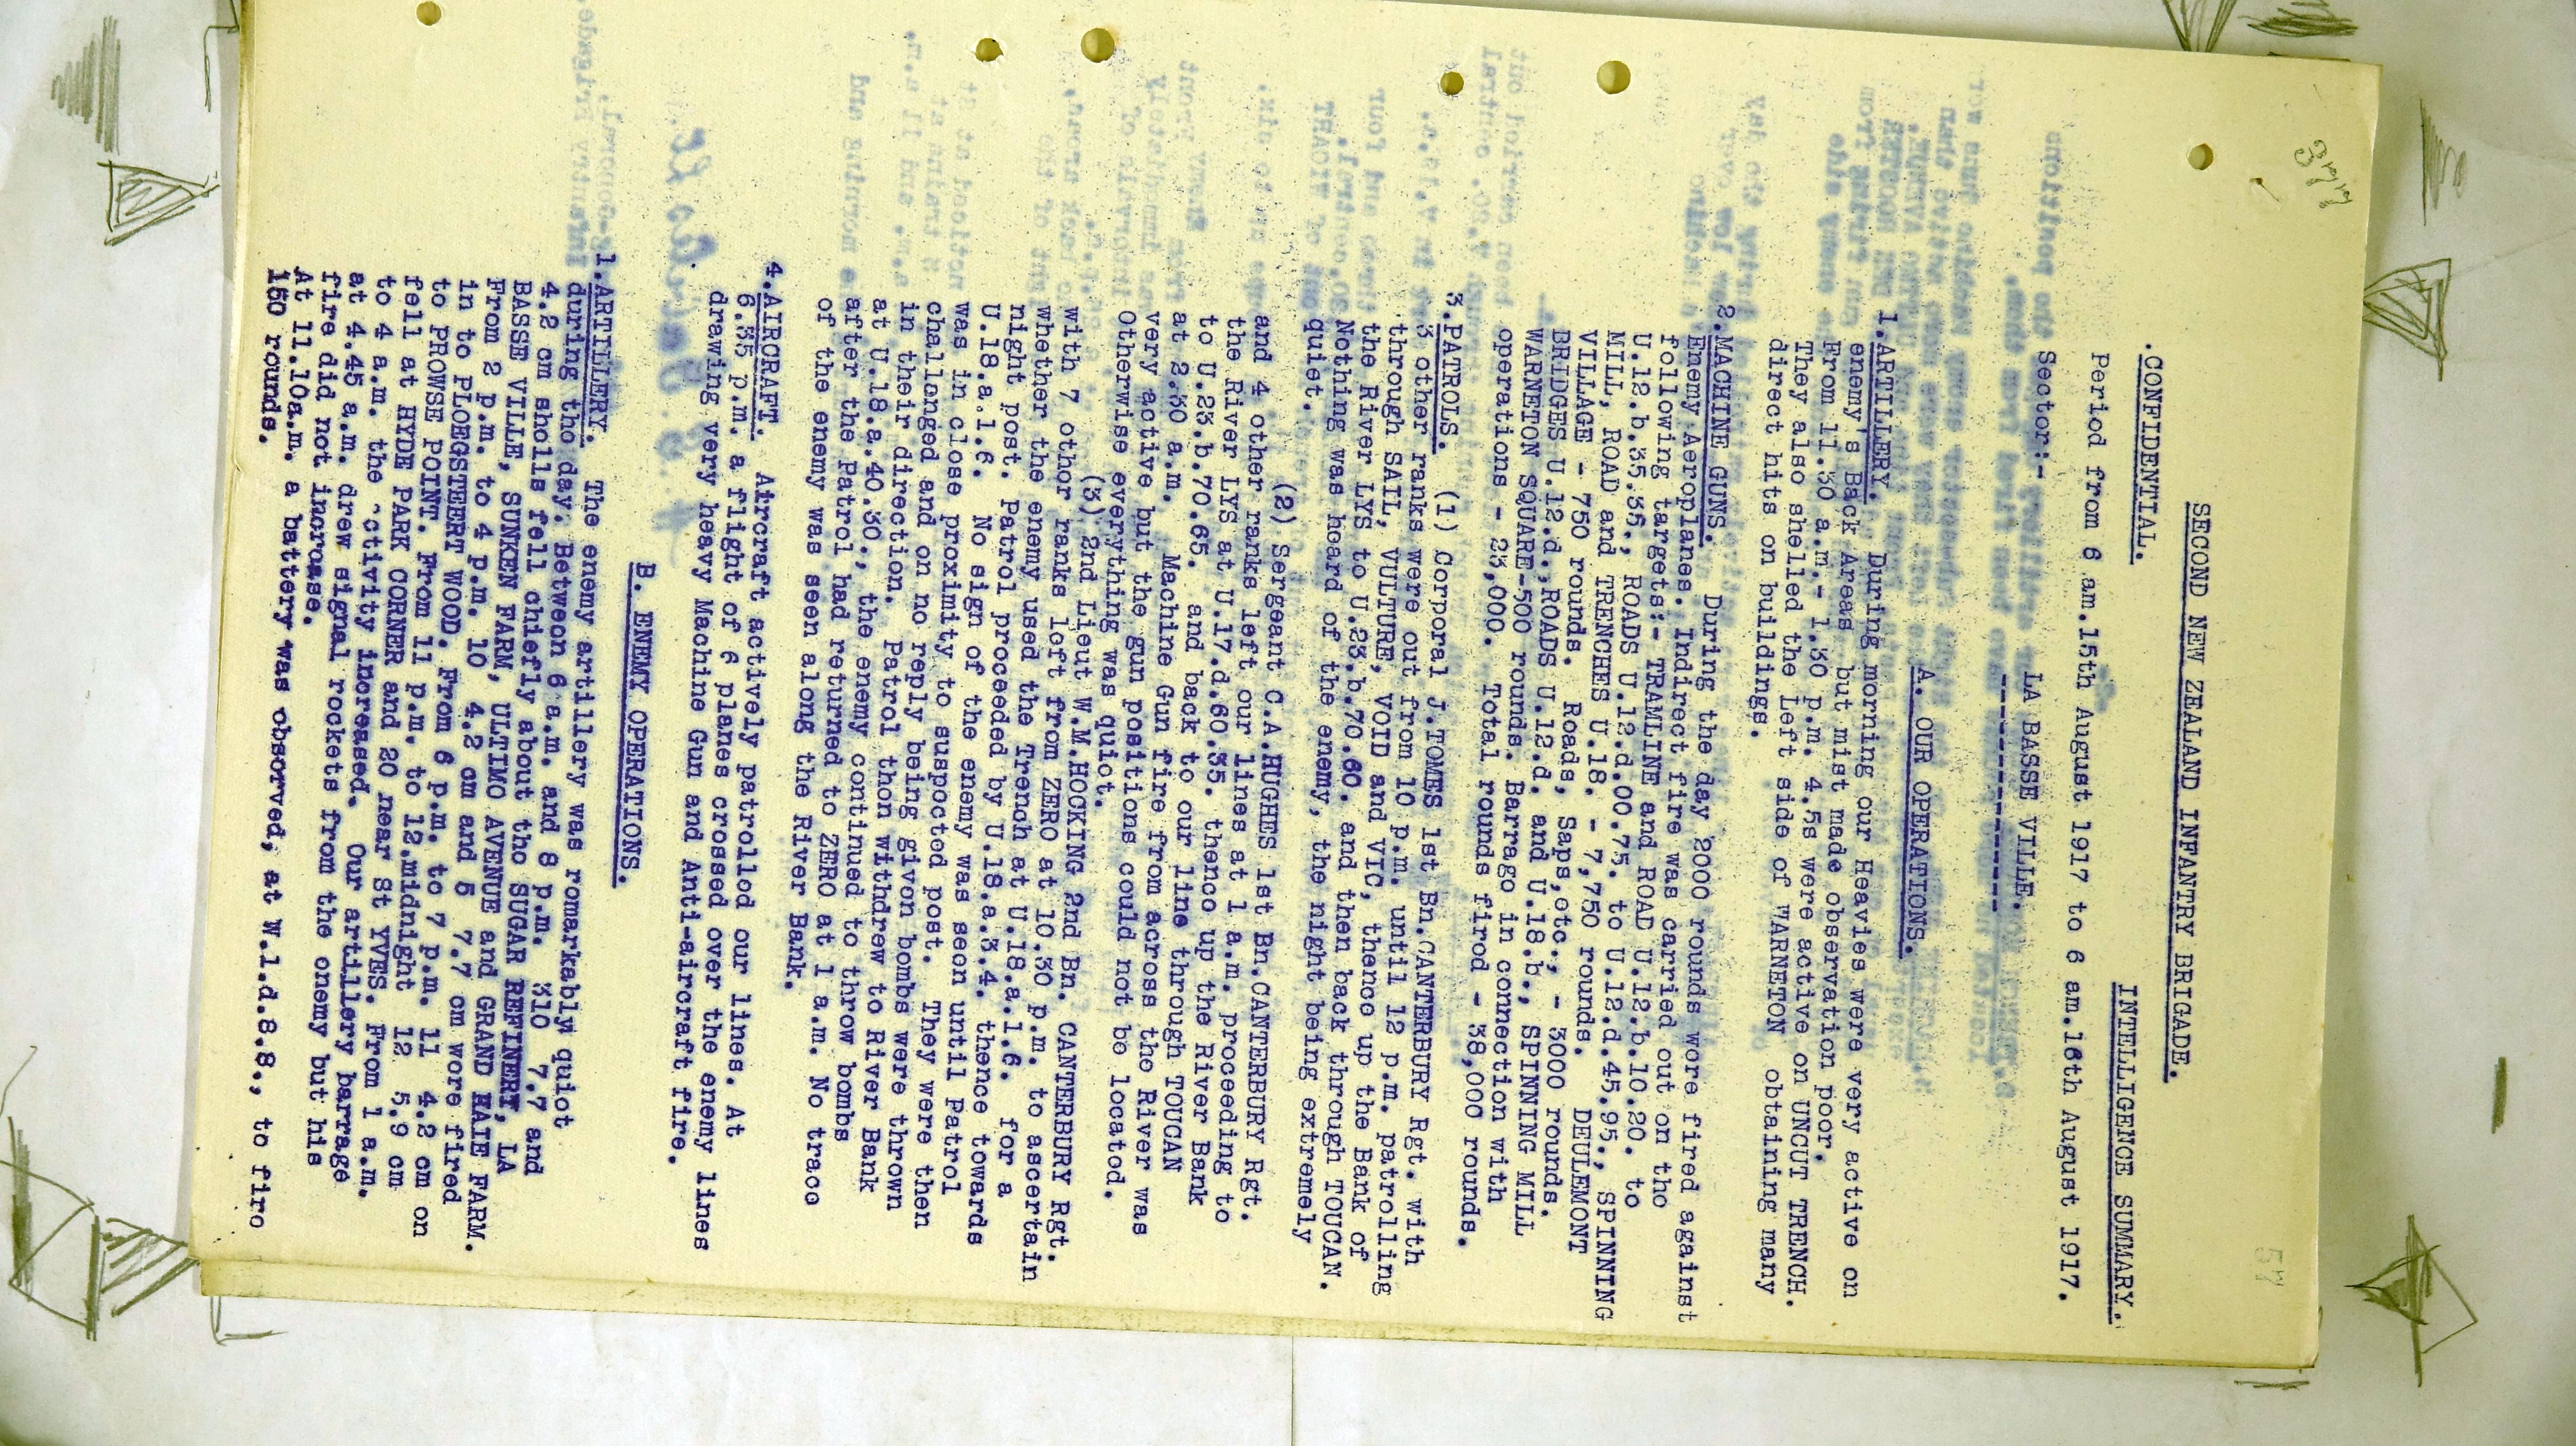 57
SECOND NEW ZEALAND INFANTRY BRIGADE.
.CONFIDENTIAL. INTELLIGENCE SUMMARY.
Period from 6 am.15th August 1917 to 6 am.16th August 1917.
Sector:- LA BASSE VILLE.
A. OUR OPERATIONS.
1.ARTILLERY. During morning our Heavies were very active on
enemy's Back Areas but mist made observation poor.
From 11.30 a.m.- 1.30 p.m. 4.5s were active on UNCUT TRENCH.
They also shelled the Left side of WARNETON obtaining many
direct hits on buildings.
2.MACHINE GUNS. During the day 2000 rounds wore fired against
Enemy Aeroplanes. Indirect fire was carried out on tho
following targets:- TRAMLINE and ROAD U.12.b.10.20. to
U.12.b.35.35., ROADS U.12.d.00.75. to U.12.d.45.95., SPINNING
MILL, ROAD and TRENCHES U.18. - 7,750 rounds. DEULEMONT
VILLAGE - 750 rounds. Roads, Saps,otc., - 3000 rounds.
BRIDGES U.12.d.,ROADS U.12.d. and U.18.b., SPINNING MILL
WARNETON SQUARE-500 rounds. Barrago in connection with
operations - 23,000. Total rounds firod - 38,000 rounds.
3.PATROLS. (1) Corporal J.TOMES 1st Bn.CANTERBURY Rgt. with
3 other ranks were out from 10 p.m. until 12 p.m. patrolling
through SAIL, VULTURE, VOID and VIC, thence up the Bank of
the River LYS to U.23.b.70.60. and then back through TOUCAN.
Nothing was hoard of the enemy, the night being extremely
quiet.
(2) Sergeant C.A.HUGHES 1st Bn.CANTERBURY Rgt.
and 4 other ranks left our lines at 1 a.m. proceeding to
the River LYS at U.17.d.60.35. thenco up the River Bank
to U.23.b.70.65. and back to our line through TOUCAN
at 2.30 a.m. Machine Gun fire from across the River was
very active but the gun positions could not be locatod.
Otherwise everything was quiot.
(3) 2nd Lieut W.M.HOCKING 2nd Bn. CANTERBURY Rgt.
with 7 othor ranks loft from ZERO at 10.30 p.m. to ascertain
whether the enemy used the Trench at U.18.a.1.6. for a
night post. Patrol proceeded by U.18.a.3.4. thence towards
U.18.a.1.6. No sign of the enemy was seon until Patrol
was in close proximity to suspocted post. They were then
challenged and on no reply being givon bombs were thrown
in their direction. Patrol thon withdrew to River Bank
at U.18.a.40.30., the enemy continued to throw bombs
after the Patrol had returned to ZERO at 1 a.m. No traco
of the enemy was seen along the River Bank.
4.AIRCRAFT. Aircraft actively patrollod our lines. At
6.35 p.m. a flight of 6 planes crossed over the enemy lines
drawing very heavy Machine Gun and Anti-aircraft fire.
B. ENEMY OPERATIONS.
1.ARTILLERY. The enemy artillery was romarkably quiot
during tho day. Betweon 6 a.m. and 8 p.m. 310 7.7 and
4.2 cm sholls fell chiefly about tho SUGAR REFINERY, LA
BASSE VILLE, SUNKEN FARM, ULTIMO AVENUE and GRAND HAIE FARM.
From 2 p.m. to 4 p.m. 10 4.2 cm and 5 7.7 cm wore fired
in to PLOEGSTEERT WOOD. From 6 p.m. to 7 p.m. 11 4.2 cm on
to PROWSE POINT. From 11 p.m. to 12.midnight 12 5.9 cm
fell at HYDE PARK CORNER and 20 near St YVES. From 1 a.m.
to 4 a.m. the activity increased. Our artillery barrage
at 4.45 a.m. drew signal rockets from the enemy but his
fire did not incroase.
At 11.10a.m. a battery was obsorved, at W.1.d.8.8., to firo
150 rounds.